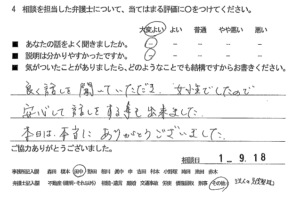 4 相談を担当した弁護士について、当てはまる評価に○をつけてください。
大変よい よい 普通 やや悪い 悪い
■ あなたの話をよく聞きましたか。
■ 説明は分かりやすかったですか。
■ 気がついたことがありましたら、どのようなことでも結構ですからお書きください。
良く話しを聞いていただき、女性でしたので
安心して話しをする事も出来ました。
本日は、本当にありがとうございました。
ご協力ありがとうございました。
相談日 1-9.18
事務局記入欄
弁護士記入欄 その他